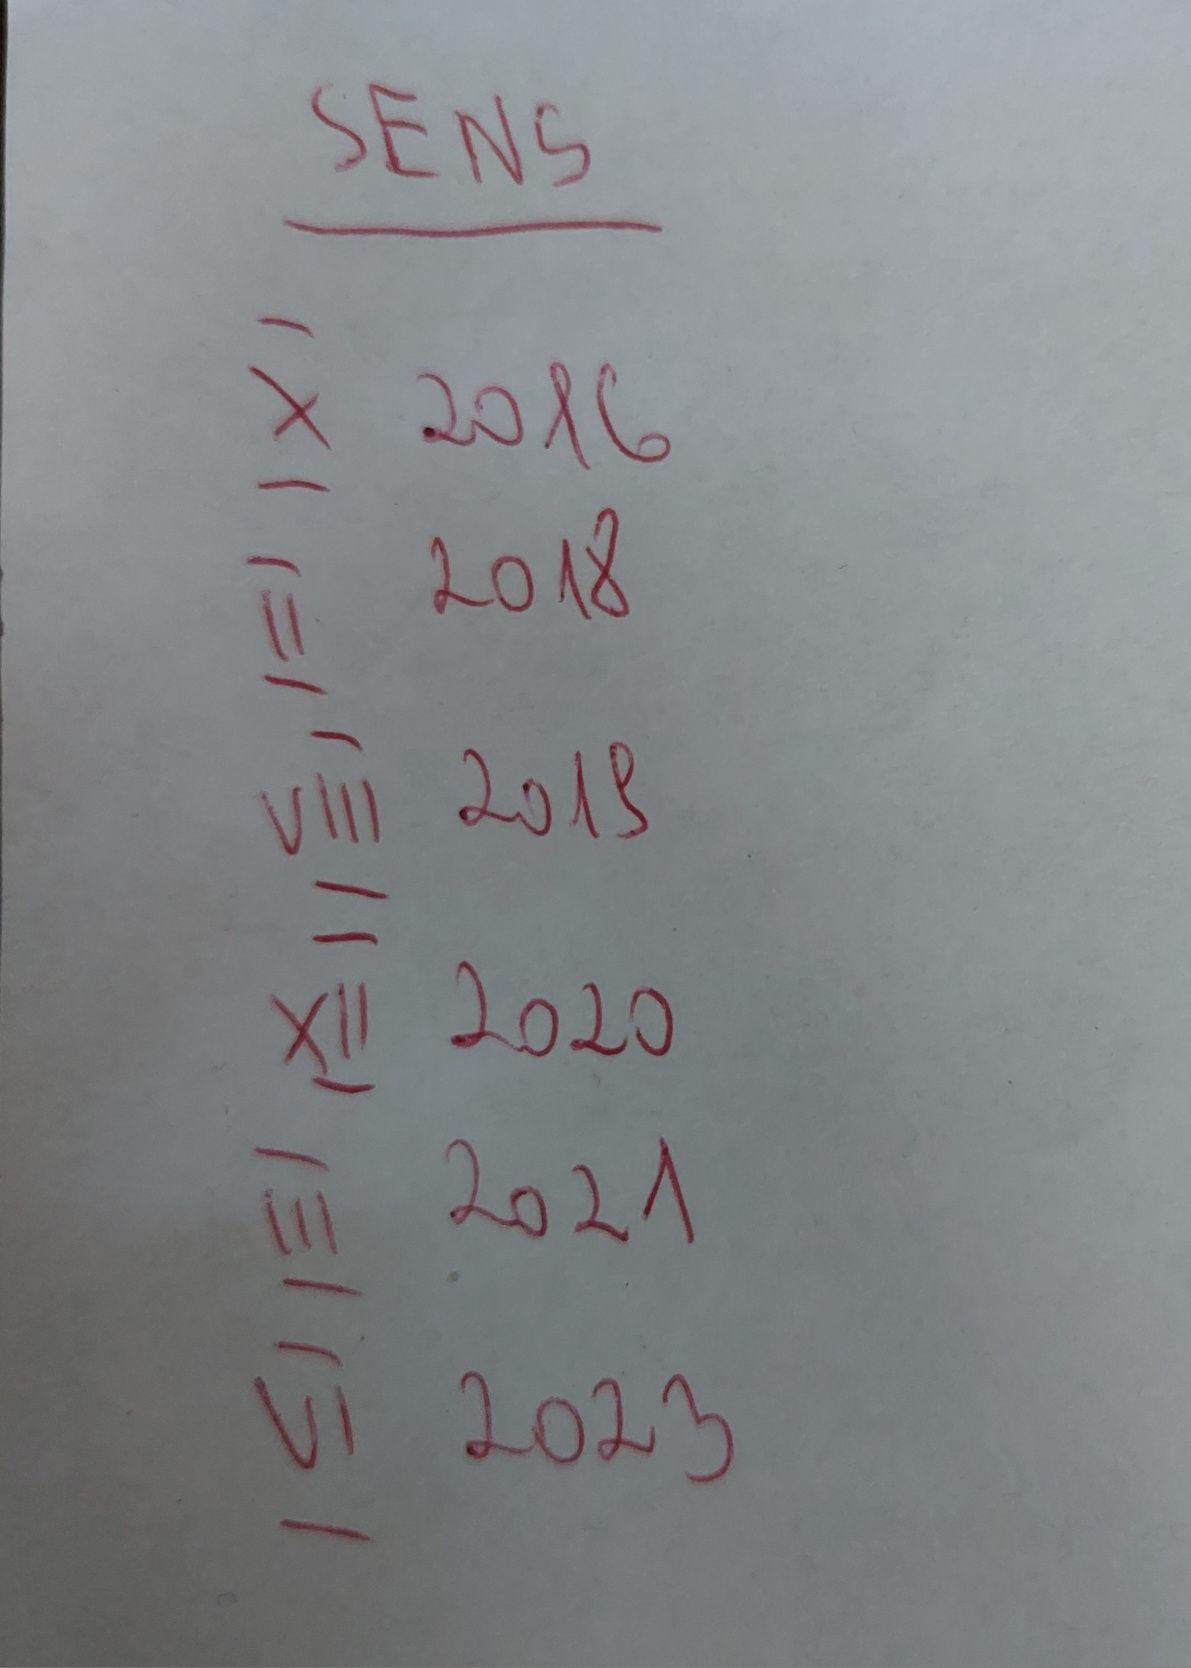 SENS
X 2016
II 2018
VIII 2019
XII 2020
III 2021
VI 2023